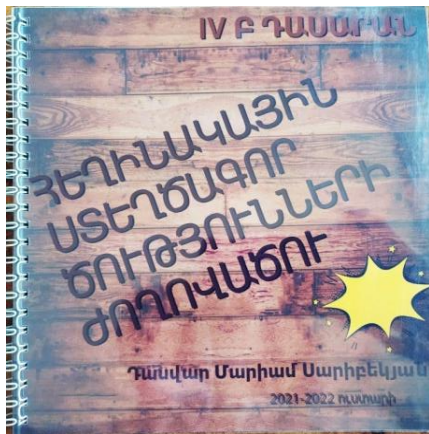 IV Բ ԴԱՍԱՐԱՆ
ՀԵՂԻՆԱԿԱՅԻՆ
ՍՏԵՂԾԱԳՈՐ
ԾՈՒԹՅՈՒՆՆԵՐԻ
ԺՈՂՈՎԱԾՈՒ
Դասվար Մարիամ Սարիբեկյան
2021-2022 ուստարի